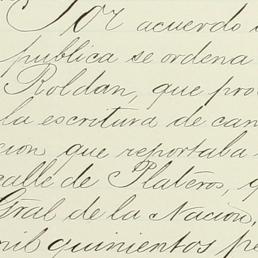 Por acuerdo
publica se ordena
Roldan, que pro
la escritura de can
cion que reportaba
calle de Plateros, q
Gral de la Nación,
mil quinientos pe